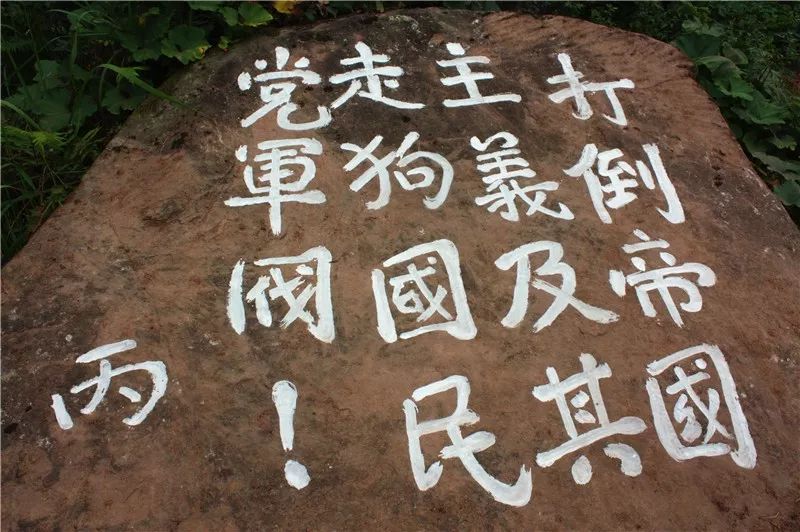 打倒帝國
主義及其
走狗國民
党軍閥！
丙